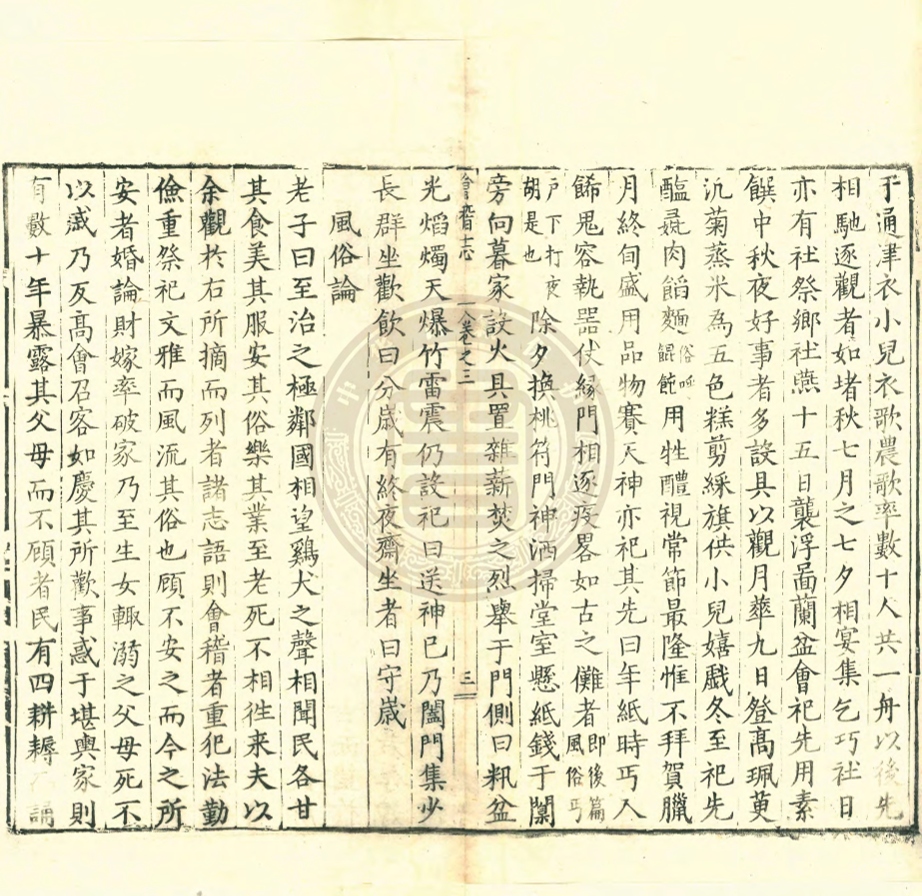 于通津衣小兒衣歌農歌率數十人共一舟以後先
相馳逐觀者如堵秋七月之七夕相宴集乞巧社日
亦有社祭鄉社燕十五日襲浮啚蘭盆會祀先用素
饌中秋夜好事者多設具以觀月華九日登髙珮萸
泛菊蒸米為五色糕剪綵旗供小兒嬉戲冬至祀先
醢彘肉餡麵俗呼餛飩用牲醴視常節最隆惟不拜賀臘
月終旬盛用品物賽天神亦祀其先曰年紙時丐人
餙鬼容執器仗縁門相逐疫畧如古之儺者即後篇風俗丐
戶下打夜胡是也除夕換桃符門神洒掃堂室懸紙錢于闑
旁向暮家設火具置雜薪焚之烈舉于門側曰籸盆
會稽志 卷之三 三
光熖燭天爆竹雷震仍設祀曰送神已乃闔門集少
長群坐歡飲曰分歲有終夜齋坐者曰守歲
風俗論
老子曰至治之極鄰國相望鷄犬之聲相聞民各甘
其食美其服安其俗樂其業至老死不相徃来夫以
余觀於右所摘而列者諸志語則會稽者重犯法勤
儉重祭祀文雅而風流其俗也顧不安之而今之所
安者婚論財嫁率破家乃至生女輙溺之父母死不
以慼乃反髙會召客如慶其所歡事惑于堪輿家則
有數十年暴露其父母而不顧者民有四耕耨